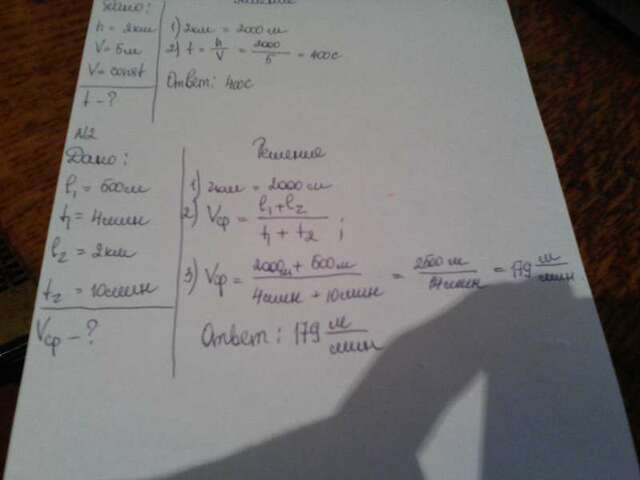 Дано:
Решение
h = 2км
V = 5м
V = const
t - ?
1) 2км = 2000м
2) t = h/V = 2000/5 = 400с
Ответ: 400с
№2
Дано:
l₁ = 500м
t₁ = 4мин
l₂ = 2км
t₂ = 10мин
Vср - ?
Решение
1) 2км = 2000м
2) Vср = l₁+l₂/t₁ + t₂ ;
3) Vср = 2000м + 500м/4мин + 10мин = 2500м/14мин = 179 м/мин
Ответ: 179 м/мин